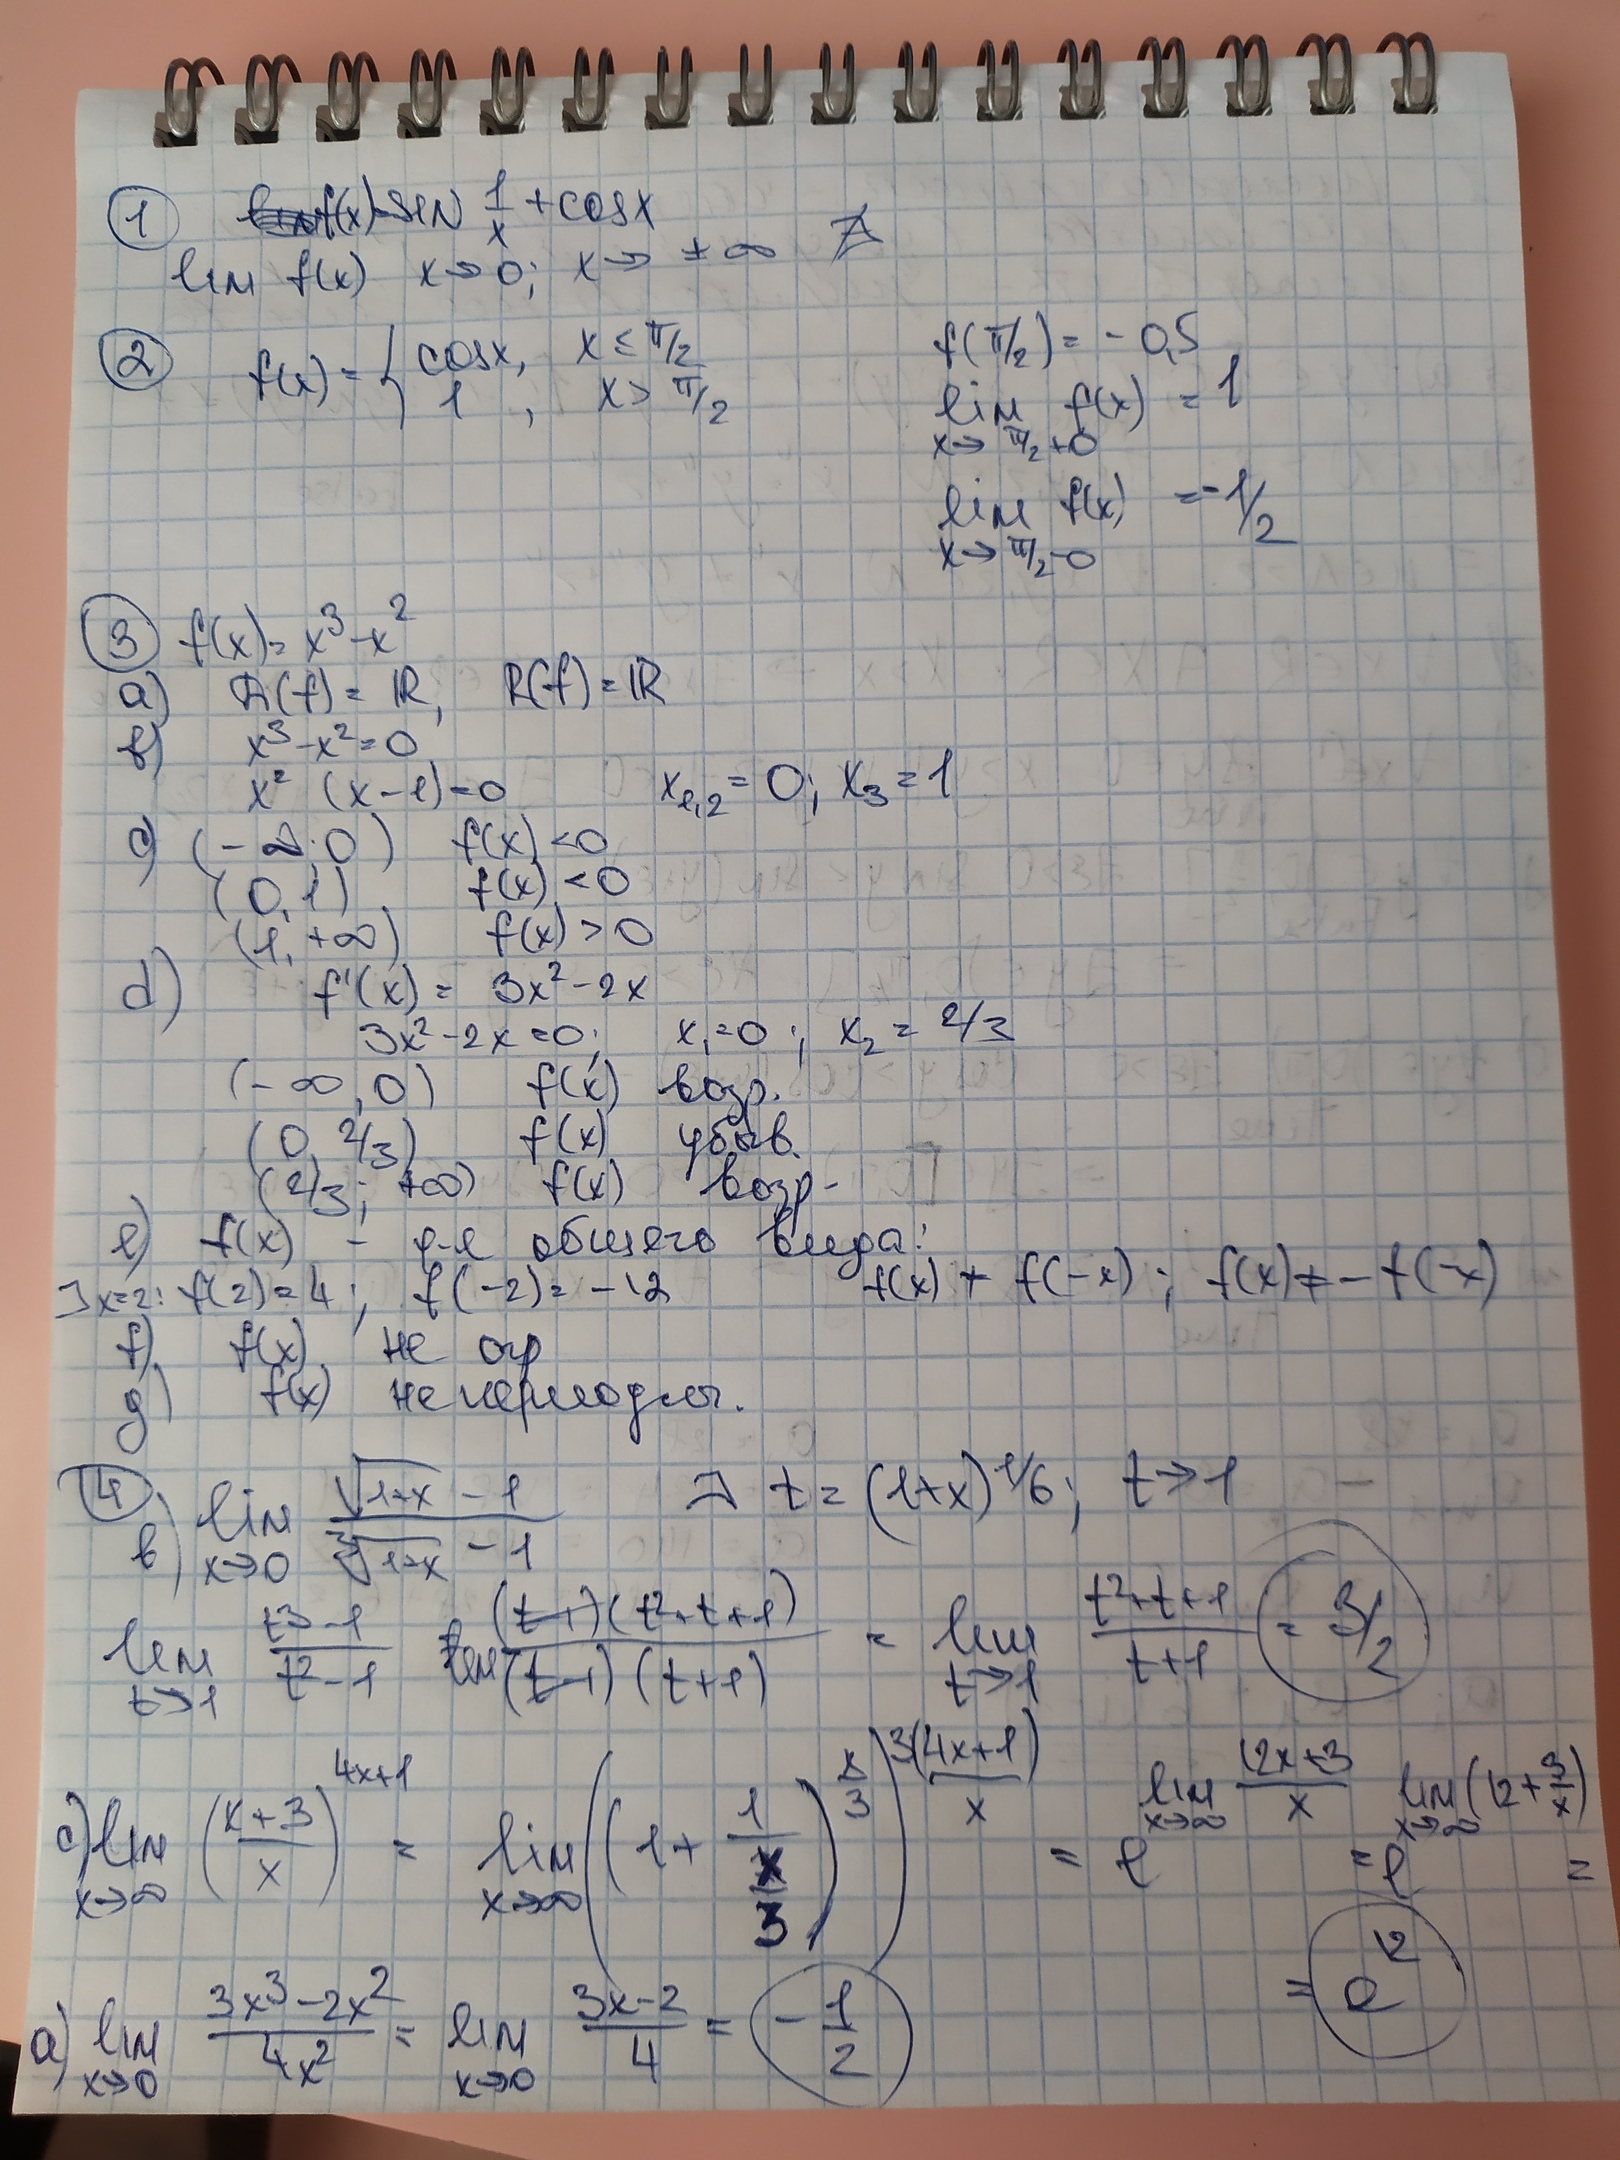 ① f(x)=sin 1/x + cosx
lim f(x) x→0; x→ ±∞ ∄
② f(x) = { cosx, x ≤ π/2
1, x > π/2
f(π/2) = - 0,5
lim f(x) = 1
x→ π/2+0
lim f(x) = -1/2
x→ π/2-0
③ f(x) = x³-x²
a) D(f) = ℝ, R(f) = ℝ
b) x³-x²=0
x² (x-1)=0 x₁,₂ = 0; x₃ = 1
c) (-∞; 0) f(x) <0
(0, 1) f(x) <0
(1, +∞) f(x) > 0
d) f'(x) = 3x²-2x
3x²-2x=0; x₁=0; x₂ = 2/3
(-∞, 0) f(x) возр.
(0, 2/3) f(x) убыв.
(2/3; +∞) f(x) возр.
e) f(x) - ф-я общего вида:
∃ x=2: f(2)=4; f(-2)= -12 f(x) ≠ f(-x); f(x) ≠ - f(-x)
f) f(x) не огр
g) f(x) не периодич.
④
b) lim x→0 (√(1+x) - 1)/(∛(1+x) - 1) ∃ t = (1+x)^1/6; t→1
lim t→1 (t³-1)/(t²-1) lim (t-1)(t²+t+1)/((t-1)(t+1)) = lim t→1 (t²+t+1)/(t+1) = 3/2
c) lim x→∞ ((x+3)/x)^(4x+1) = lim x→∞ ((1 + 1/(x/3))^(x/3))^(3(4x+1)/x) = e^(lim x→∞ (12x+3)/x) = e^(lim x→∞ (12 + 3/x)) =
= e^12
a) lim x→0 (3x³-2x²)/(4x²) = lim x→0 (3x-2)/4 = -1/2